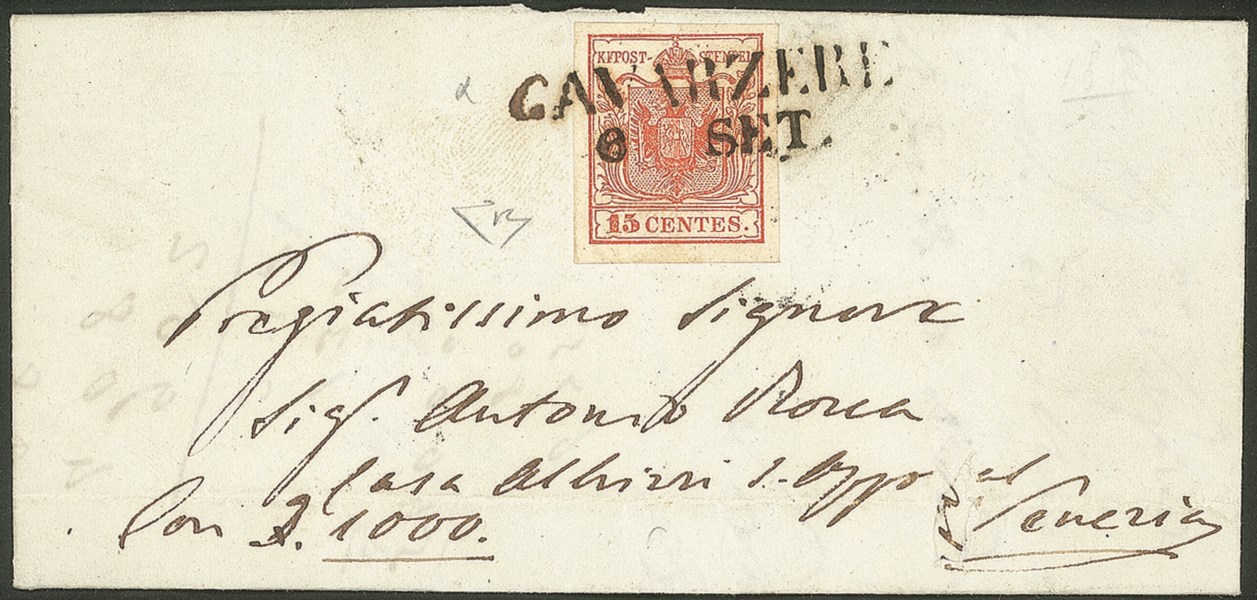 KKPOST-STEMPEL
CAVARZERE
6 SET.
15 CENTES.
Pregiatissimo Signore
Sigr. Antonio Rocca
Casa Albrizzi S.
Con 1000.
Venezia